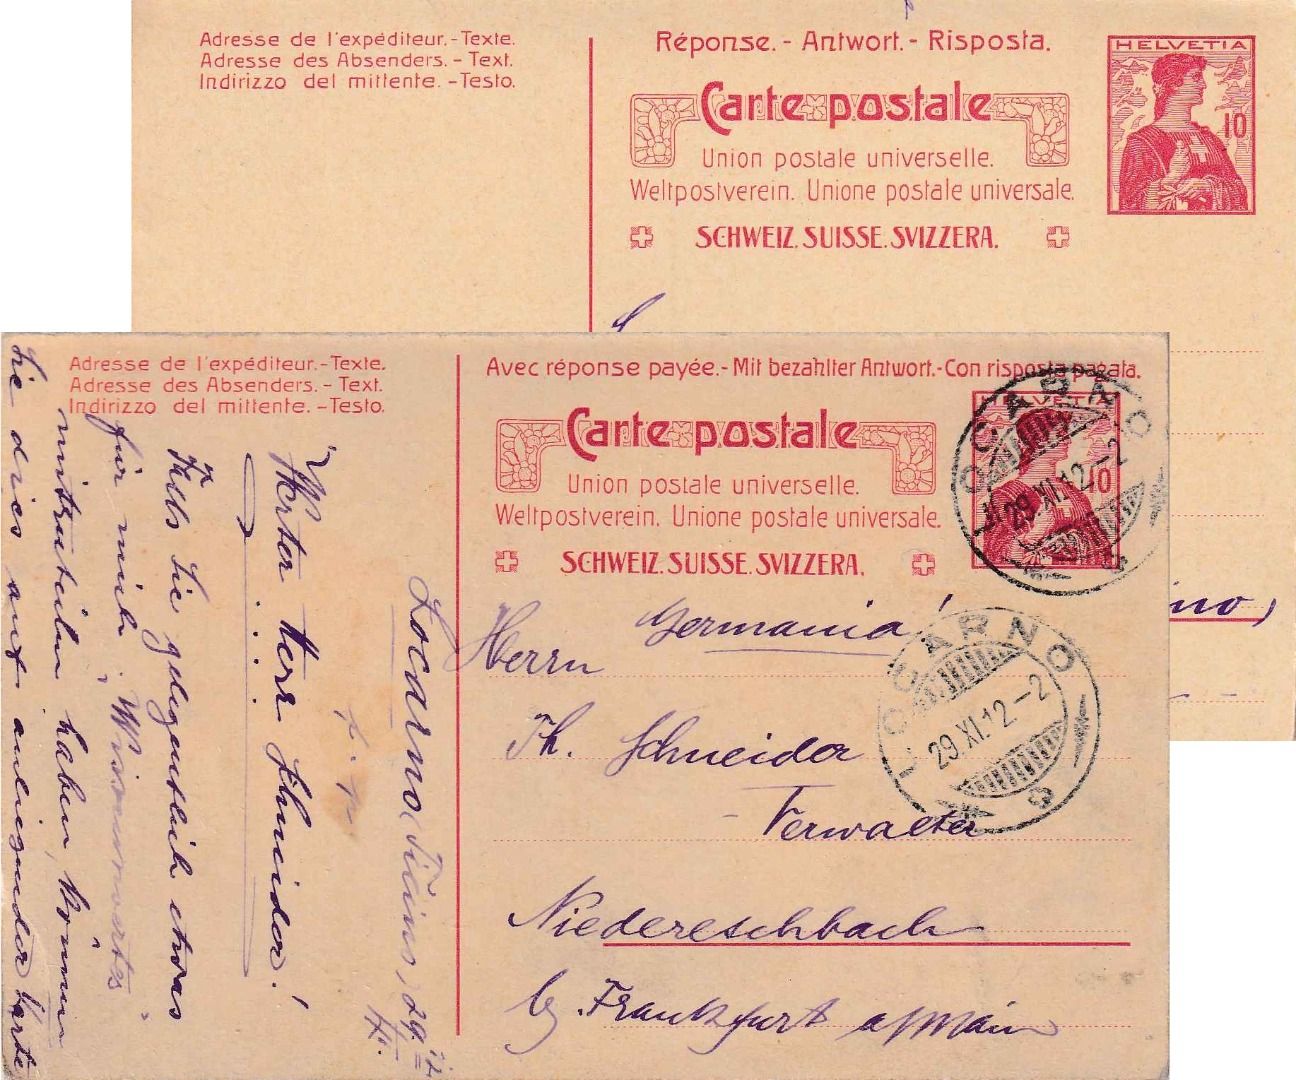 Adresse de l'expéditeur.-Texte.
Adresse des Absenders. - Text.
Indirizzo del mittente. -Testo.
Réponse. - Antwort. - Risposta.
Carte postale
Union postale universelle.
Weltpostverein. Unione postale universale.
SCHWEIZ. SUISSE. SVIZZERA.
HELVETIA
10
Adresse de l'expéditeur.-Texte.
Adresse des Absenders. - Text.
Indirizzo del mittente. -Testo.
Avec réponse payée.- Mit bezahlter Antwort.- Con risposta pagata.
Carte postale
Union postale universelle.
Weltpostverein. Unione postale universale.
SCHWEIZ. SUISSE. SVIZZERA.
HELVETIA
10
LOCARNO
29.XI.12.-2
LOCARNO
29.XI.12.-2
Germania!
Herrn
Th. Schneider
Verwalter
Niedereschbach
b/. Frankfurt a/Main
Locarno (Ticino) 29.
Werter Herr Schneider!
Falls Sie gelegentlich etwas
für mich Wissenswertes
mitzuteilen haben, können
Sie dies auf anliegender Karte